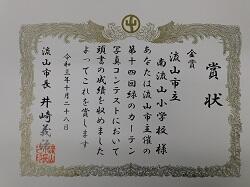 賞状
金賞
流山市立
南流山小学校様
あなたは流山市主催の
第十四回緑のカーテン
写真コンテストにおいて
頭書の成績を収めました
よってこれを賞します
令和三年十月二十八日
流山市長 井崎義治